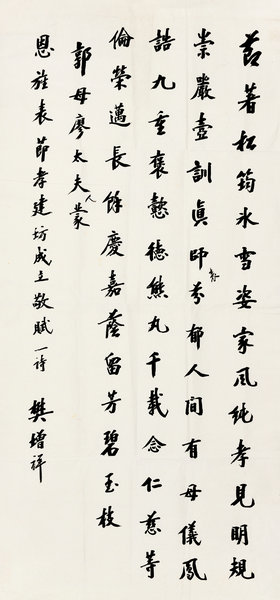 莭著松筠冰雪姿家風純孝見明規
崇嚴壼訓眞師表芬郁人間有母儀鳳
誥九重褒懿德熊丸千載念仁慈等
倫榮邁長餘慶嘉蔭留芳碧玉枝
郭母廖太夫人蒙
恩旌表節孝建坊成立敬賦一詩 樊增祥